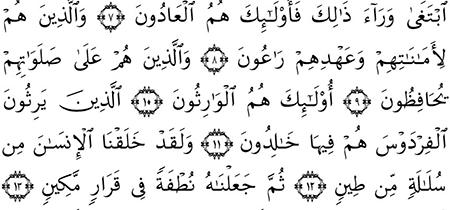 ٱبْتَغَىٰ وَرَآءَ ذَٰلِكَ فَأُو۟لَـٰٓئِكَ هُمُ ٱلْعَادُونَ ﴿٧﴾ وَٱلَّذِينَ هُمْ
لِأَمَـٰنَـٰتِهِمْ وَعَهْدِهِمْ رَٰعُونَ ﴿٨﴾ وَٱلَّذِينَ هُمْ عَلَىٰ صَلَوَٰتِهِمْ
يُحَافِظُونَ ﴿٩﴾ أُو۟لَـٰٓئِكَ هُمُ ٱلْوَٰرِثُونَ ﴿١٠﴾ ٱلَّذِينَ يَرِثُونَ
ٱلْفِرْدَوْسَ هُمْ فِيهَا خَـٰلِدُونَ ﴿١١﴾ وَلَقَدْ خَلَقْنَا ٱلْإِنسَـٰنَ مِن
سُلَـٰلَةٍ مِّن طِينٍ ﴿١٢﴾ ثُمَّ جَعَلْنَـٰهُ نُطْفَةً فِى قَرَارٍ مَّكِينٍ ﴿١٣﴾